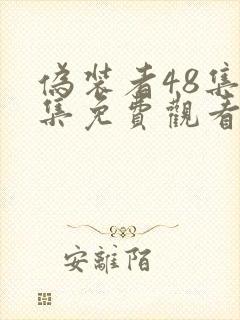 偽裝者48集
集免費觀看
安離陌